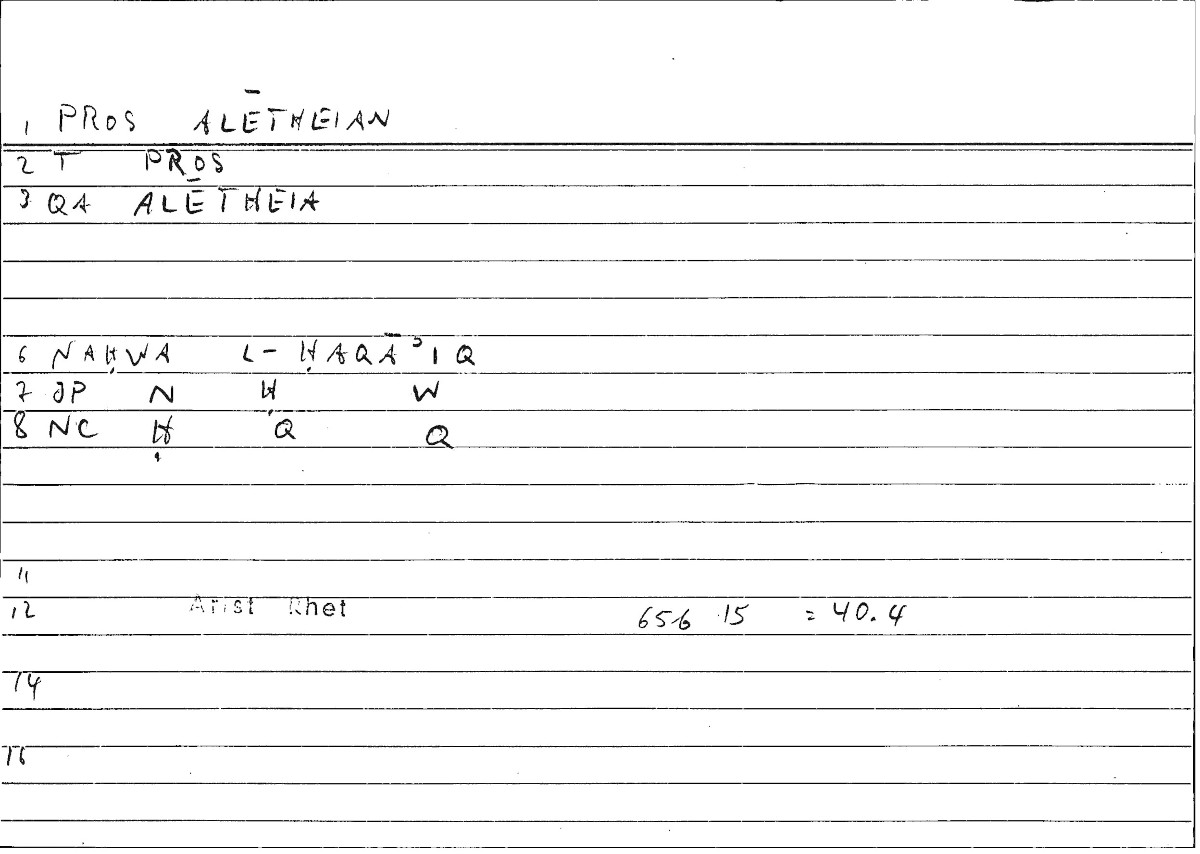 1 PROS ALĒTHEIAN
2 T PROS
3 QA ALĒTHEIA
6 NAḤWA L-ḤAQĀʾIQ
7 JP N Ḥ W
8 NC Ḥ Q Q
11
12 Arist Rhet 656 15 = 40.4
14
16